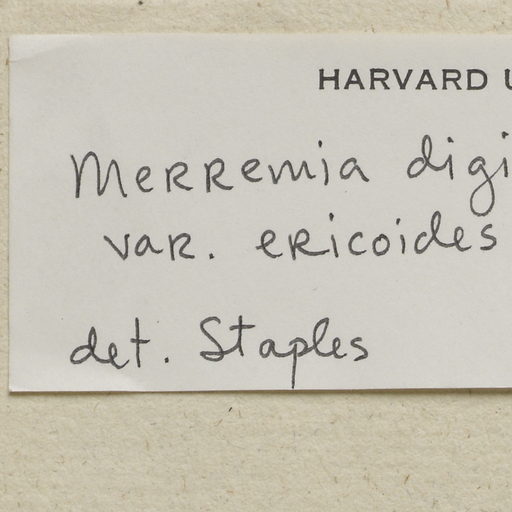 HARVARD U
Merremia digi
var. ericoides
det. Staples